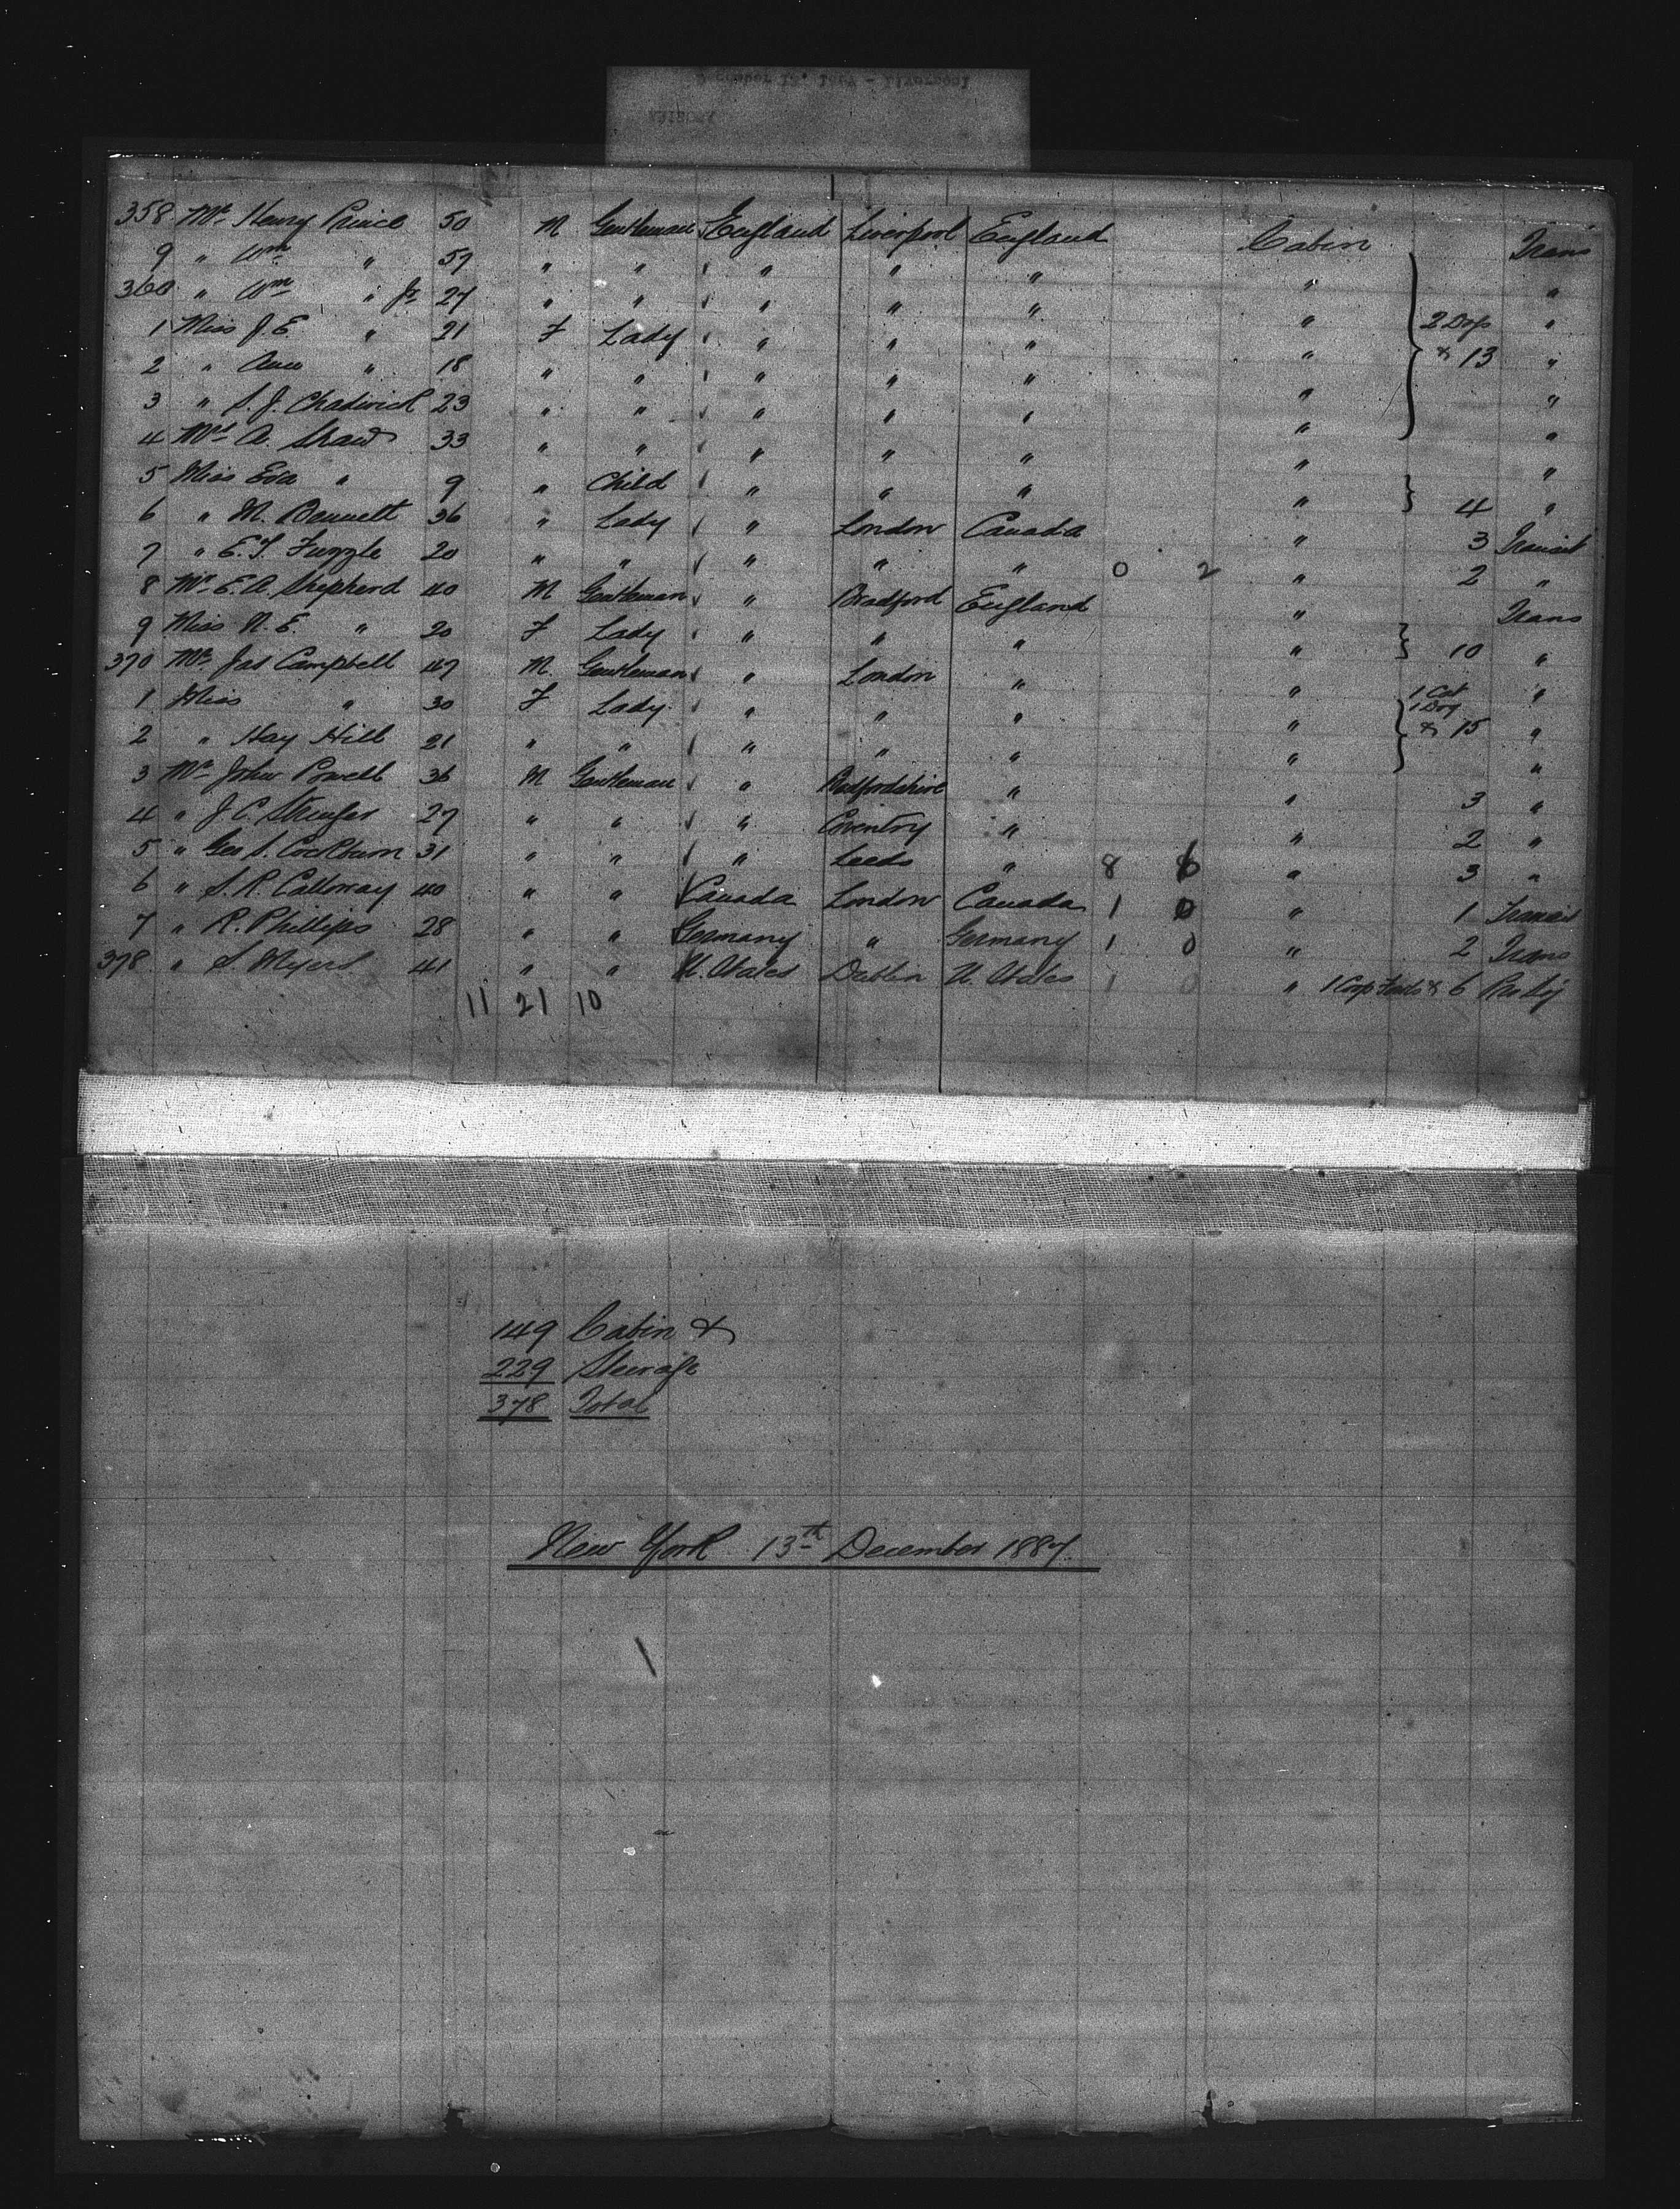 358 Mr Henry Prince 50 M Gentleman England Liverpool England Cabin Trans
9 " Wm " 57 " " " " " " "
360 " Wm " Jr 27 " " " " " " "
1 Miss J. E. " 21 F Lady " " " " 2 Dogs "
2 " Annie " 18 " " " " " " & 13 "
3 " S. J. Chadwick 23 " " " " " " "
4 Mrs A. Shaw 33 " " " " " " "
5 Miss Eva " 9 " Child " " " " 4 "
6 " M. Bennett 36 " Lady " London Canada " 3 Transit
7 " E. T. Fuggle 20 " " " " " 0 2 " 2 "
8 Mr E. A. Shepherd 40 M Gentleman " Bradford England " Trans
9 Miss N. E. " 20 F Lady " " " " 10 "
370 Mr Jas Campbell 47 M Gentleman " London " " "
1 Miss " 30 F Lady " " " " 1 Cat 1 Dog & 15 "
2 " Hay Hill 21 " " " " " " "
3 Mr John Powell 36 M Gentleman " Bedfordshire " " 3 "
4 " J. C. 27 " " " Coventry " " 2 "
5 " Geo S. Cockburn 31 " " " Leeds " 8 6 " 3 "
6 " S. R. Calloway 40 " " Canada London Canada 1 0 " 1 Transit
7 " R. Phillips 28 " " Germany " Germany 1 0 " 2 Trans
378 " S. Meyers 41 " " U. States Dublin U. States 1 0 " 1 & 6
11 21 10
149 Cabin &
229 Steerage
378 Total
New York 13th December 1887.